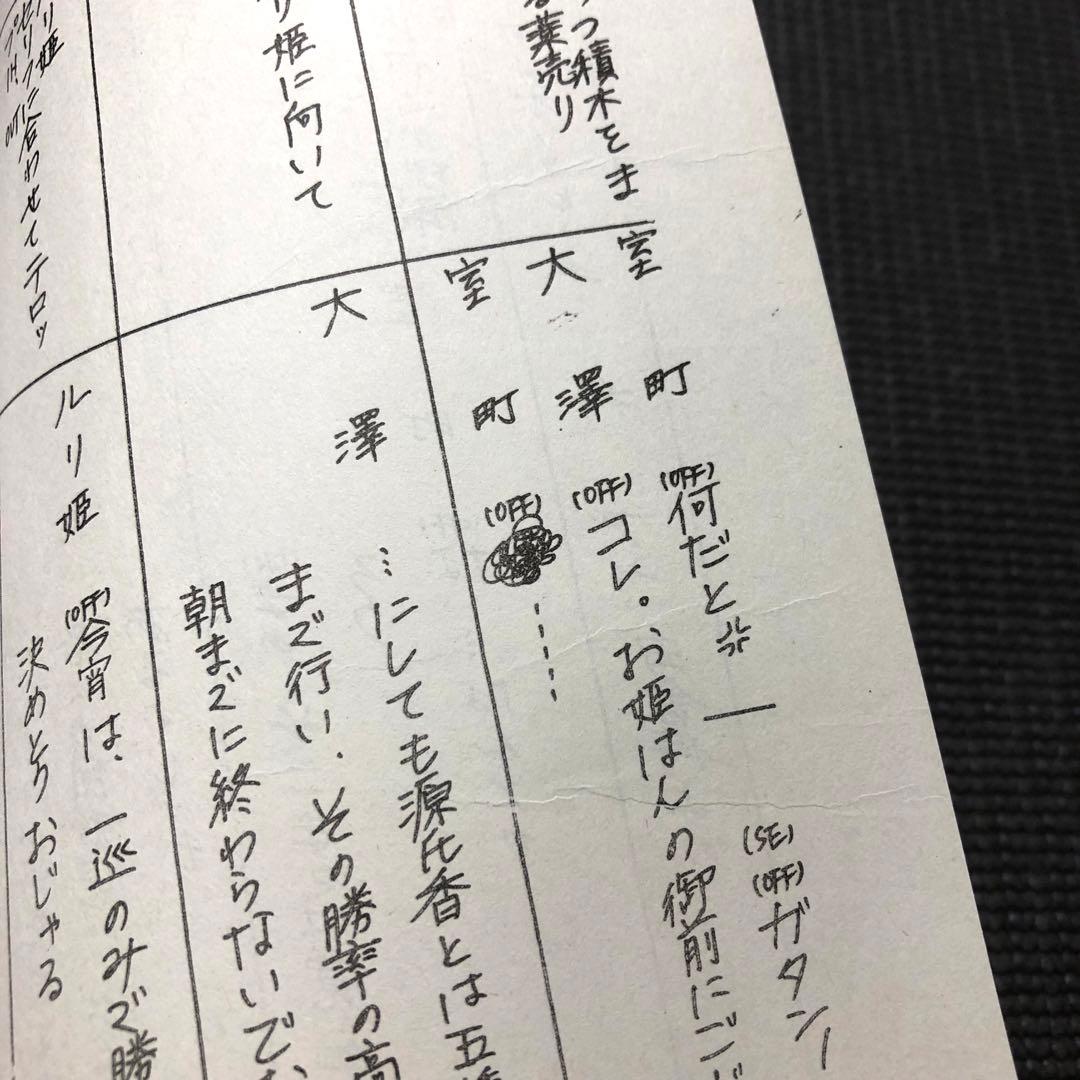 つ積木をま
る薬売り
リ姫に向いて
リ姫
セリフに合わせてテロッ
プIN、OUT
(SE)
(OFF)ガタン
室町 (OFF)何だと
大澤 (OFF)コレ。お姫はんの御前にご
室町 (OFF)……
大澤 …にしても源氏香とは五
まで行い、その勝率の高
朝までに終わらないで
ルリ姫 (OFF)今宵は、一巡のみで勝
決めとう おじゃる